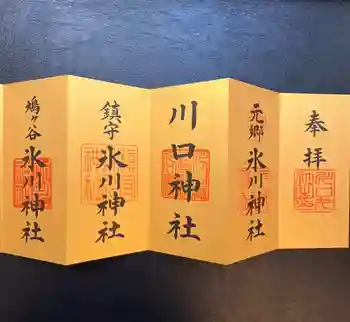 奉拝
元郷
氷川神社
川口神社
鎮守
氷川神社
鳩ヶ谷
氷川神社